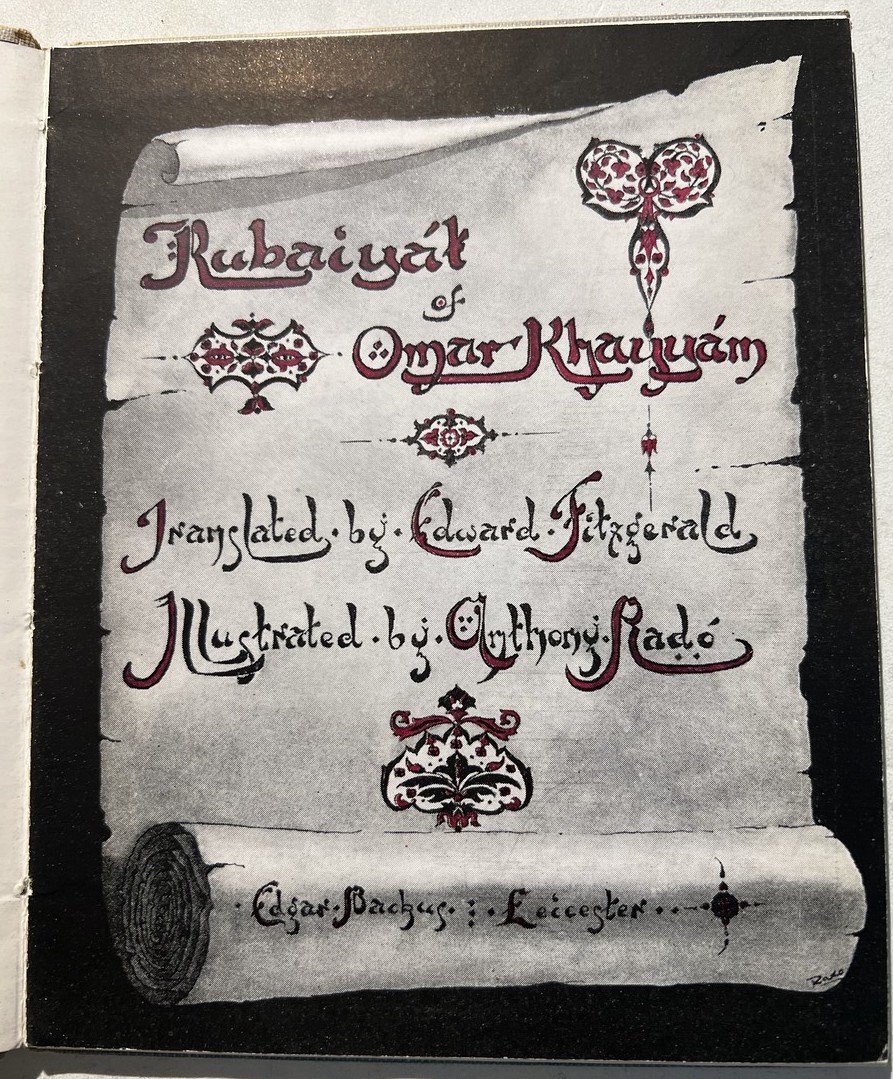 Rubaiyát
of
Omar Khayyám
Translated · by · Edward · Fitzgerald
Illustrated · by · Anthony · Radó
Edgar · Backus · : · Leicester · ·
Rado